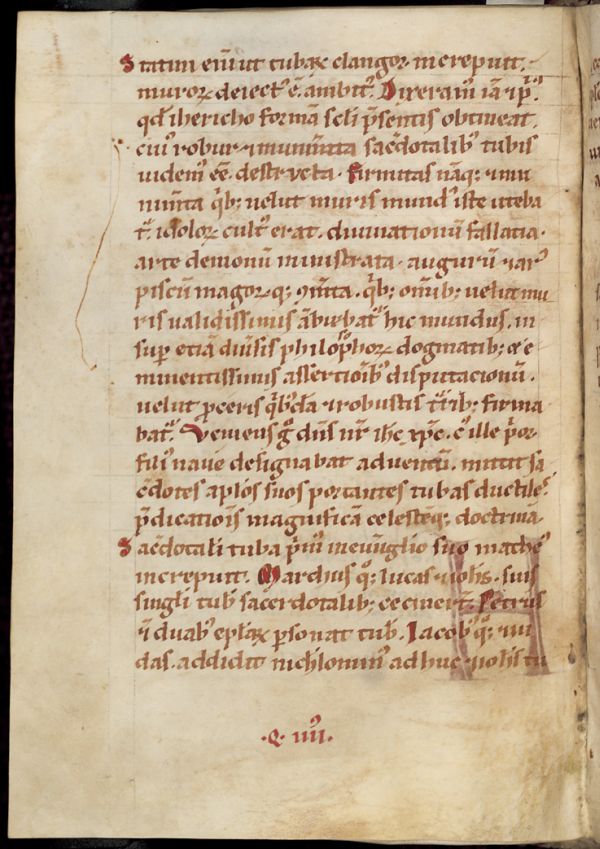 Statim eni ut tubaꝝ clangor increpuit.
muroꝝ deiect᾽ ē ambit᾽. Dixeram᾽ iā ⁊ ip̄i᾽
qđ ihericho formā scli p̄sentis obtineat.
cui᾽ robur ⁊ munim̄ta sac̄dotalib᾽ tubis
uidem᾽ ēē destructa. Firmitas nāq; ⁊ mu
nim̄ta qͥb; uelut muris mund᾽ iste uteba
t᾽. idoloꝝ cult᾽ erat. diuinationū fallatia.
arte demonū ministrata. auguriū ⁊ ar᾽
piscum magoꝝ q; ꝯm̄ta. qͥb; om̄ib; uelut mu
ris ualidissimis ābiebat᾽ hic mundus. in
sup̄ etiā diu̇sis philoꝓhoꝝ dogmatib; ⁊ e
minentissimis assertioīb᾽ disputacionū.
uelut ꝓceris qͥb᾽dā ⁊ robustis t᾽rib; firma
bat᾽. Veniens gͦ dn̄s nr̄ ih̄c xp̄c. c᾽ ille p᾽or
fili᾽ naue designabat aduentū. mittit sa
c̄dotes aplōs suos portantes tubas ductiles
p̄dicatiōis magnificā celestēq; doctrinā.
Sac̄dotali tuba p̄m᾽ in eu̇nglio suo mathe᾽
increpuit. Marchus q᾽; lucas ⁊ ioh̄s. suis
singli tub᾽ sacerdotalib; cecinert̄. Petrus
⁊ duab᾽ ep̄laꝝ ꝑsonat tub᾽. Iacob᾽ q᾽; ⁊ iu
das. addidit nichilomin᾽ adhuc ⁊ ioh̄s tu
.Q. iiii᾽.